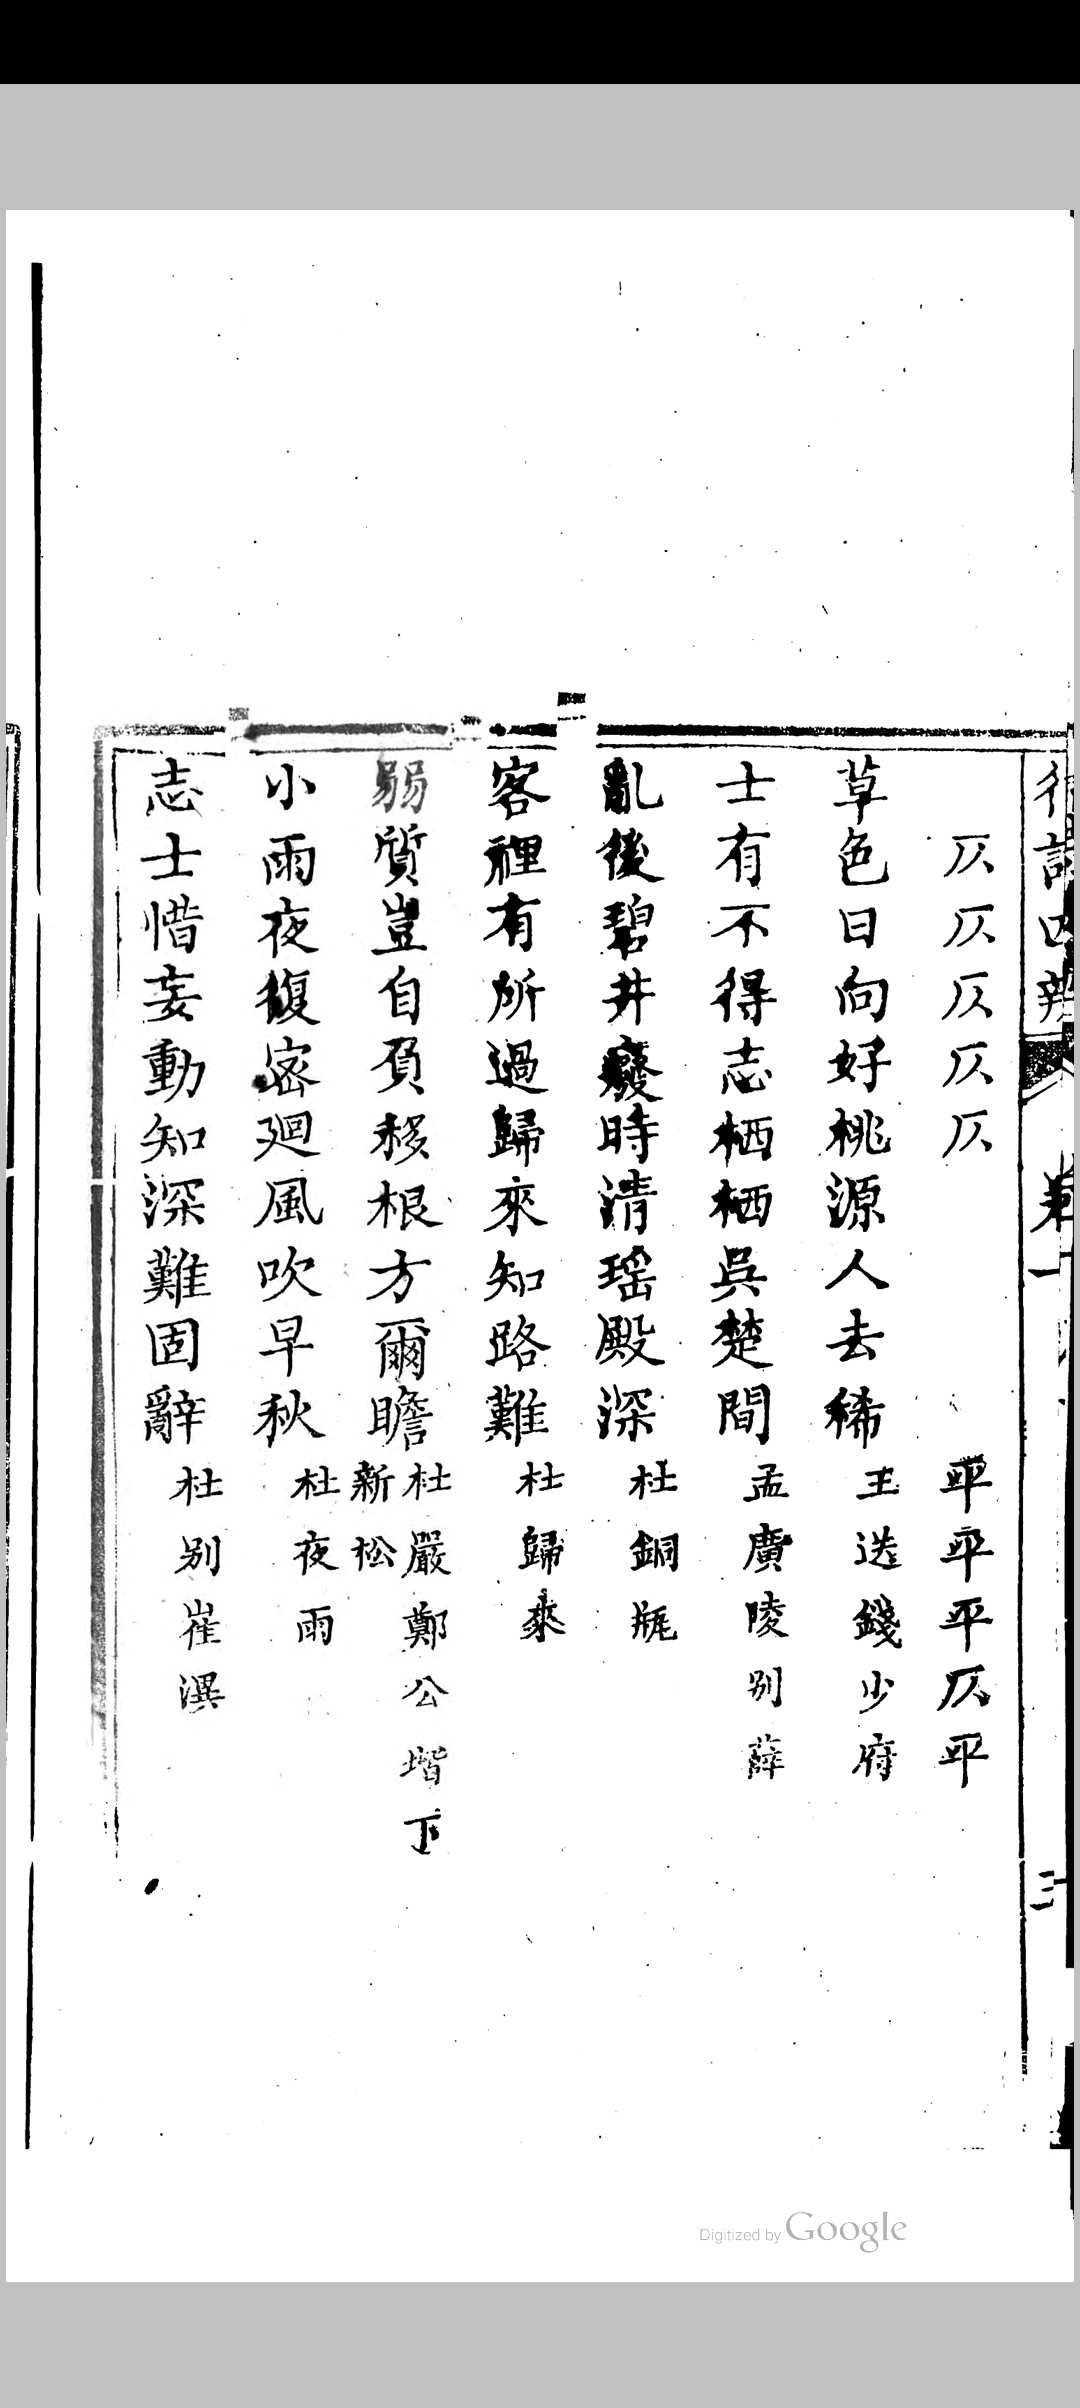 律詩四辨 卷一 三十
仄仄仄仄仄 平平平仄平
草色日向好桃源人去稀 王送錢少府
士有不得志栖栖吳楚間 孟廣陵别薛
亂後碧井癈時清瑶殿深 杜銅瓶
客裡有所過歸來知路難 杜歸來
弱質豈自負移根方爾瞻 杜嚴鄭公堦下新松
小雨夜復密廻風吹早秋 杜夜雨
志士惜妄動知深難固辭 杜别崔潩
Digitized by Google